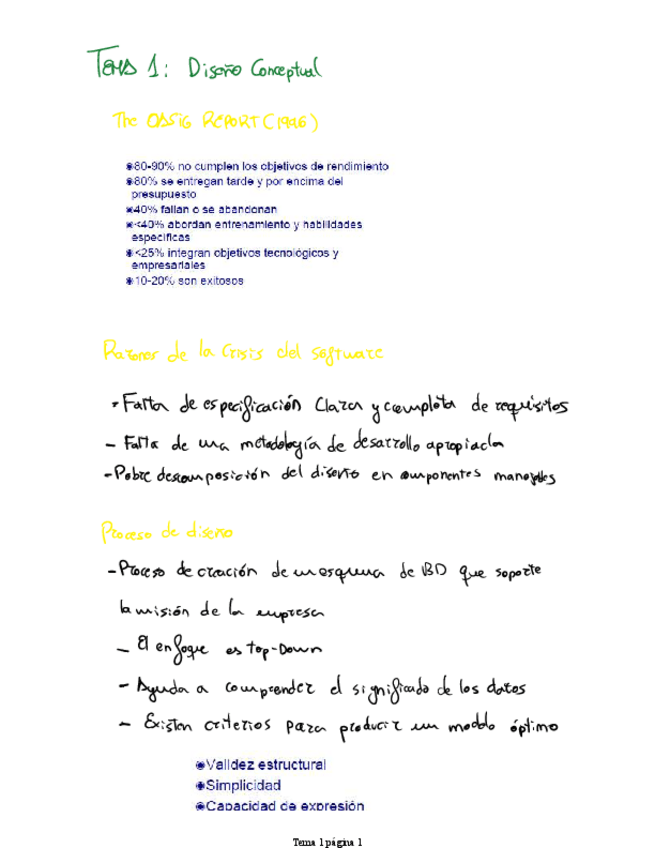 Tema 1: Diseño Conceptual
The OASIG REPORT (1996)
80-90% no cumplen los objetivos de rendimiento
80% se entregan tarde y por encima del
presupuesto
40% fallan o se abandonan
<40% abordan entrenamiento y habilidades
especificas
<25% integran objetivos tecnológicos y
empresariales
10-20% son exitosos
Razones de la Crisis del software
- Falta de especificación Clara y completa de requisitos
- Falta de una metodología de desarrollo apropiada
- Pobre descomposición del diseño en componentes manejables
Proceso de diseño
- Proceso de creación de un esquema de BD que soporte
la misión de la empresa
- El enfoque es top-Down
- Ayuda a comprender el significado de los datos
- Existen criterios para producir un modelo óptimo
Validez estructural
Simplicidad
Capacidad de expresión
Tema 1 página 1